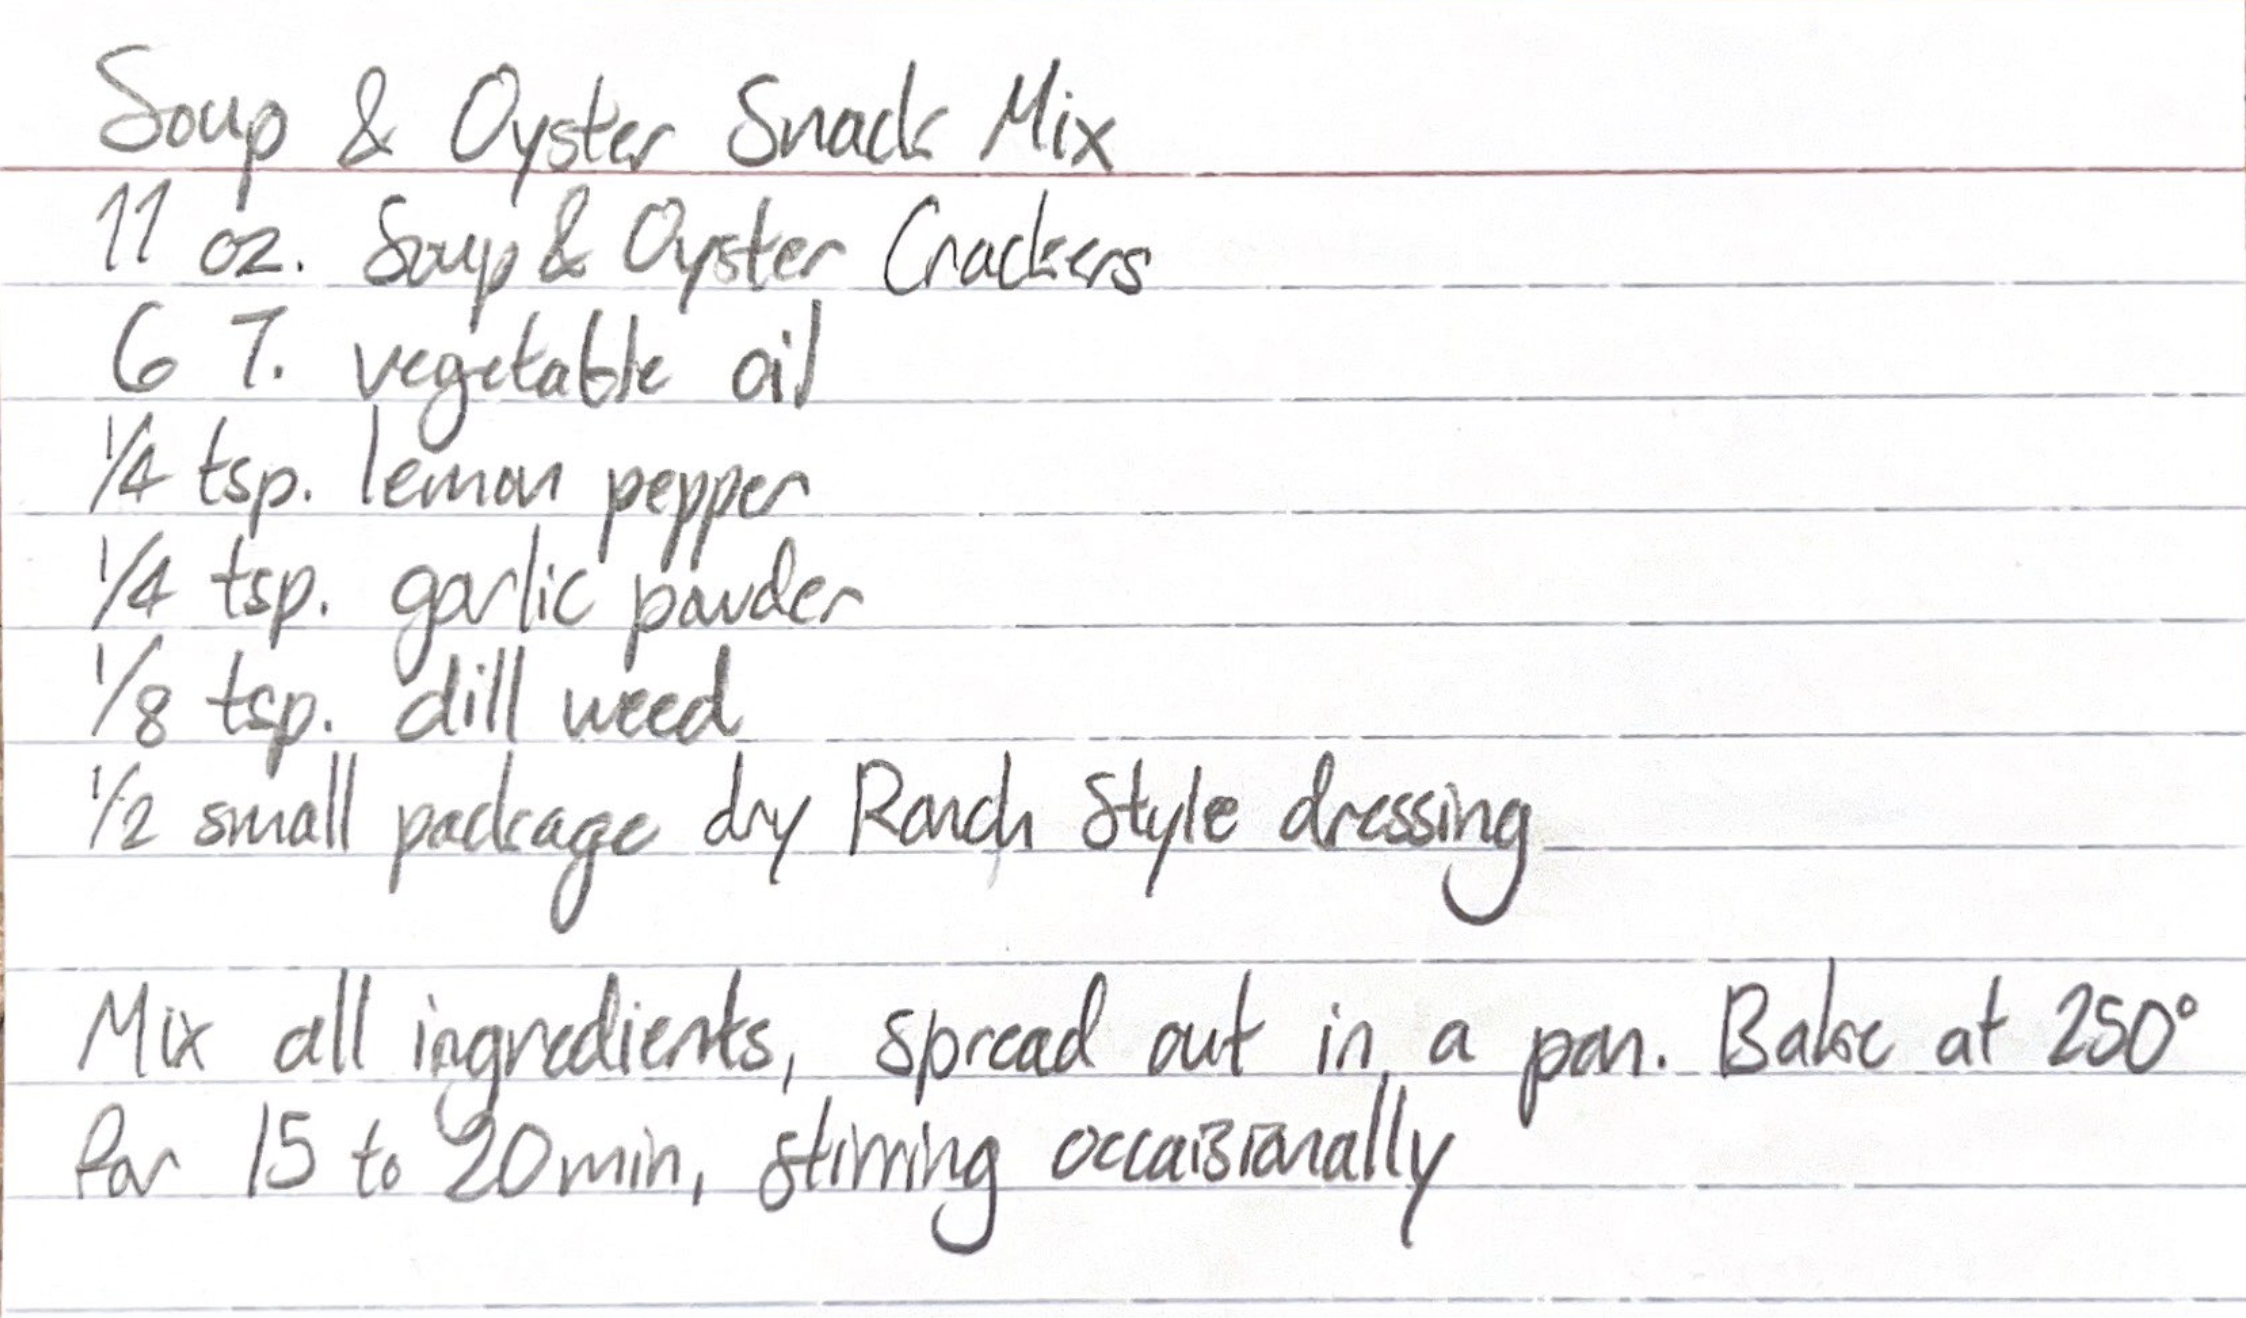 Soup & Oyster Snack Mix
11 oz. Soup & Oyster Crackers
6 T. vegetable oil
1/4 tsp. lemon pepper
1/4 tsp. garlic powder
1/8 tsp. dill weed
1/2 small package dry Ranch Style dressing
Mix all ingredients, spread out in a pan. Bake at 250°
for 15 to 20 min, stirring occaisionally